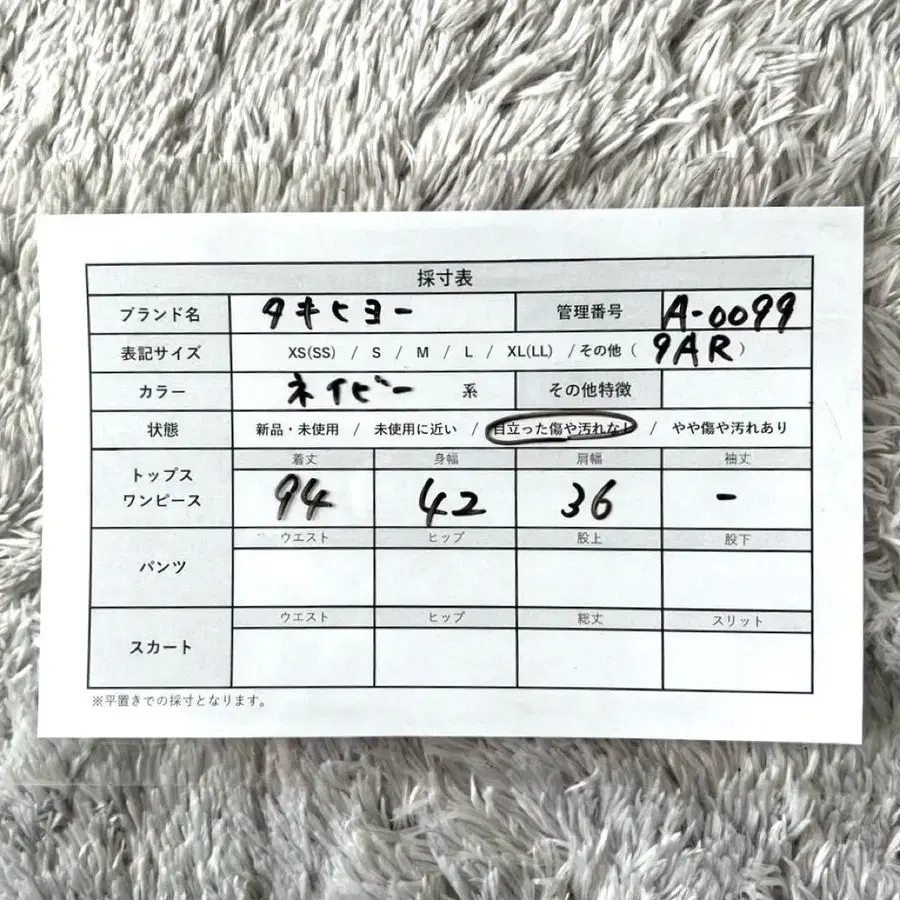 採寸表
ブランド名 タキヒヨー 管理番号 A-0099
表記サイズ XS(SS) / S / M / L / XL(LL) / その他 ( 9AR )
カラー ネイビー 系 その他特徴
状態 新品・未使用 / 未使用に近い / 目立った傷や汚れなし / やや傷や汚れあり
着丈 身幅 肩幅 袖丈
トップス
ワンピース
94 42 36 -
ウエスト ヒップ 股上 股下
パンツ
ウエスト ヒップ 総丈 スリット
スカート
※平置きでの採寸となります。